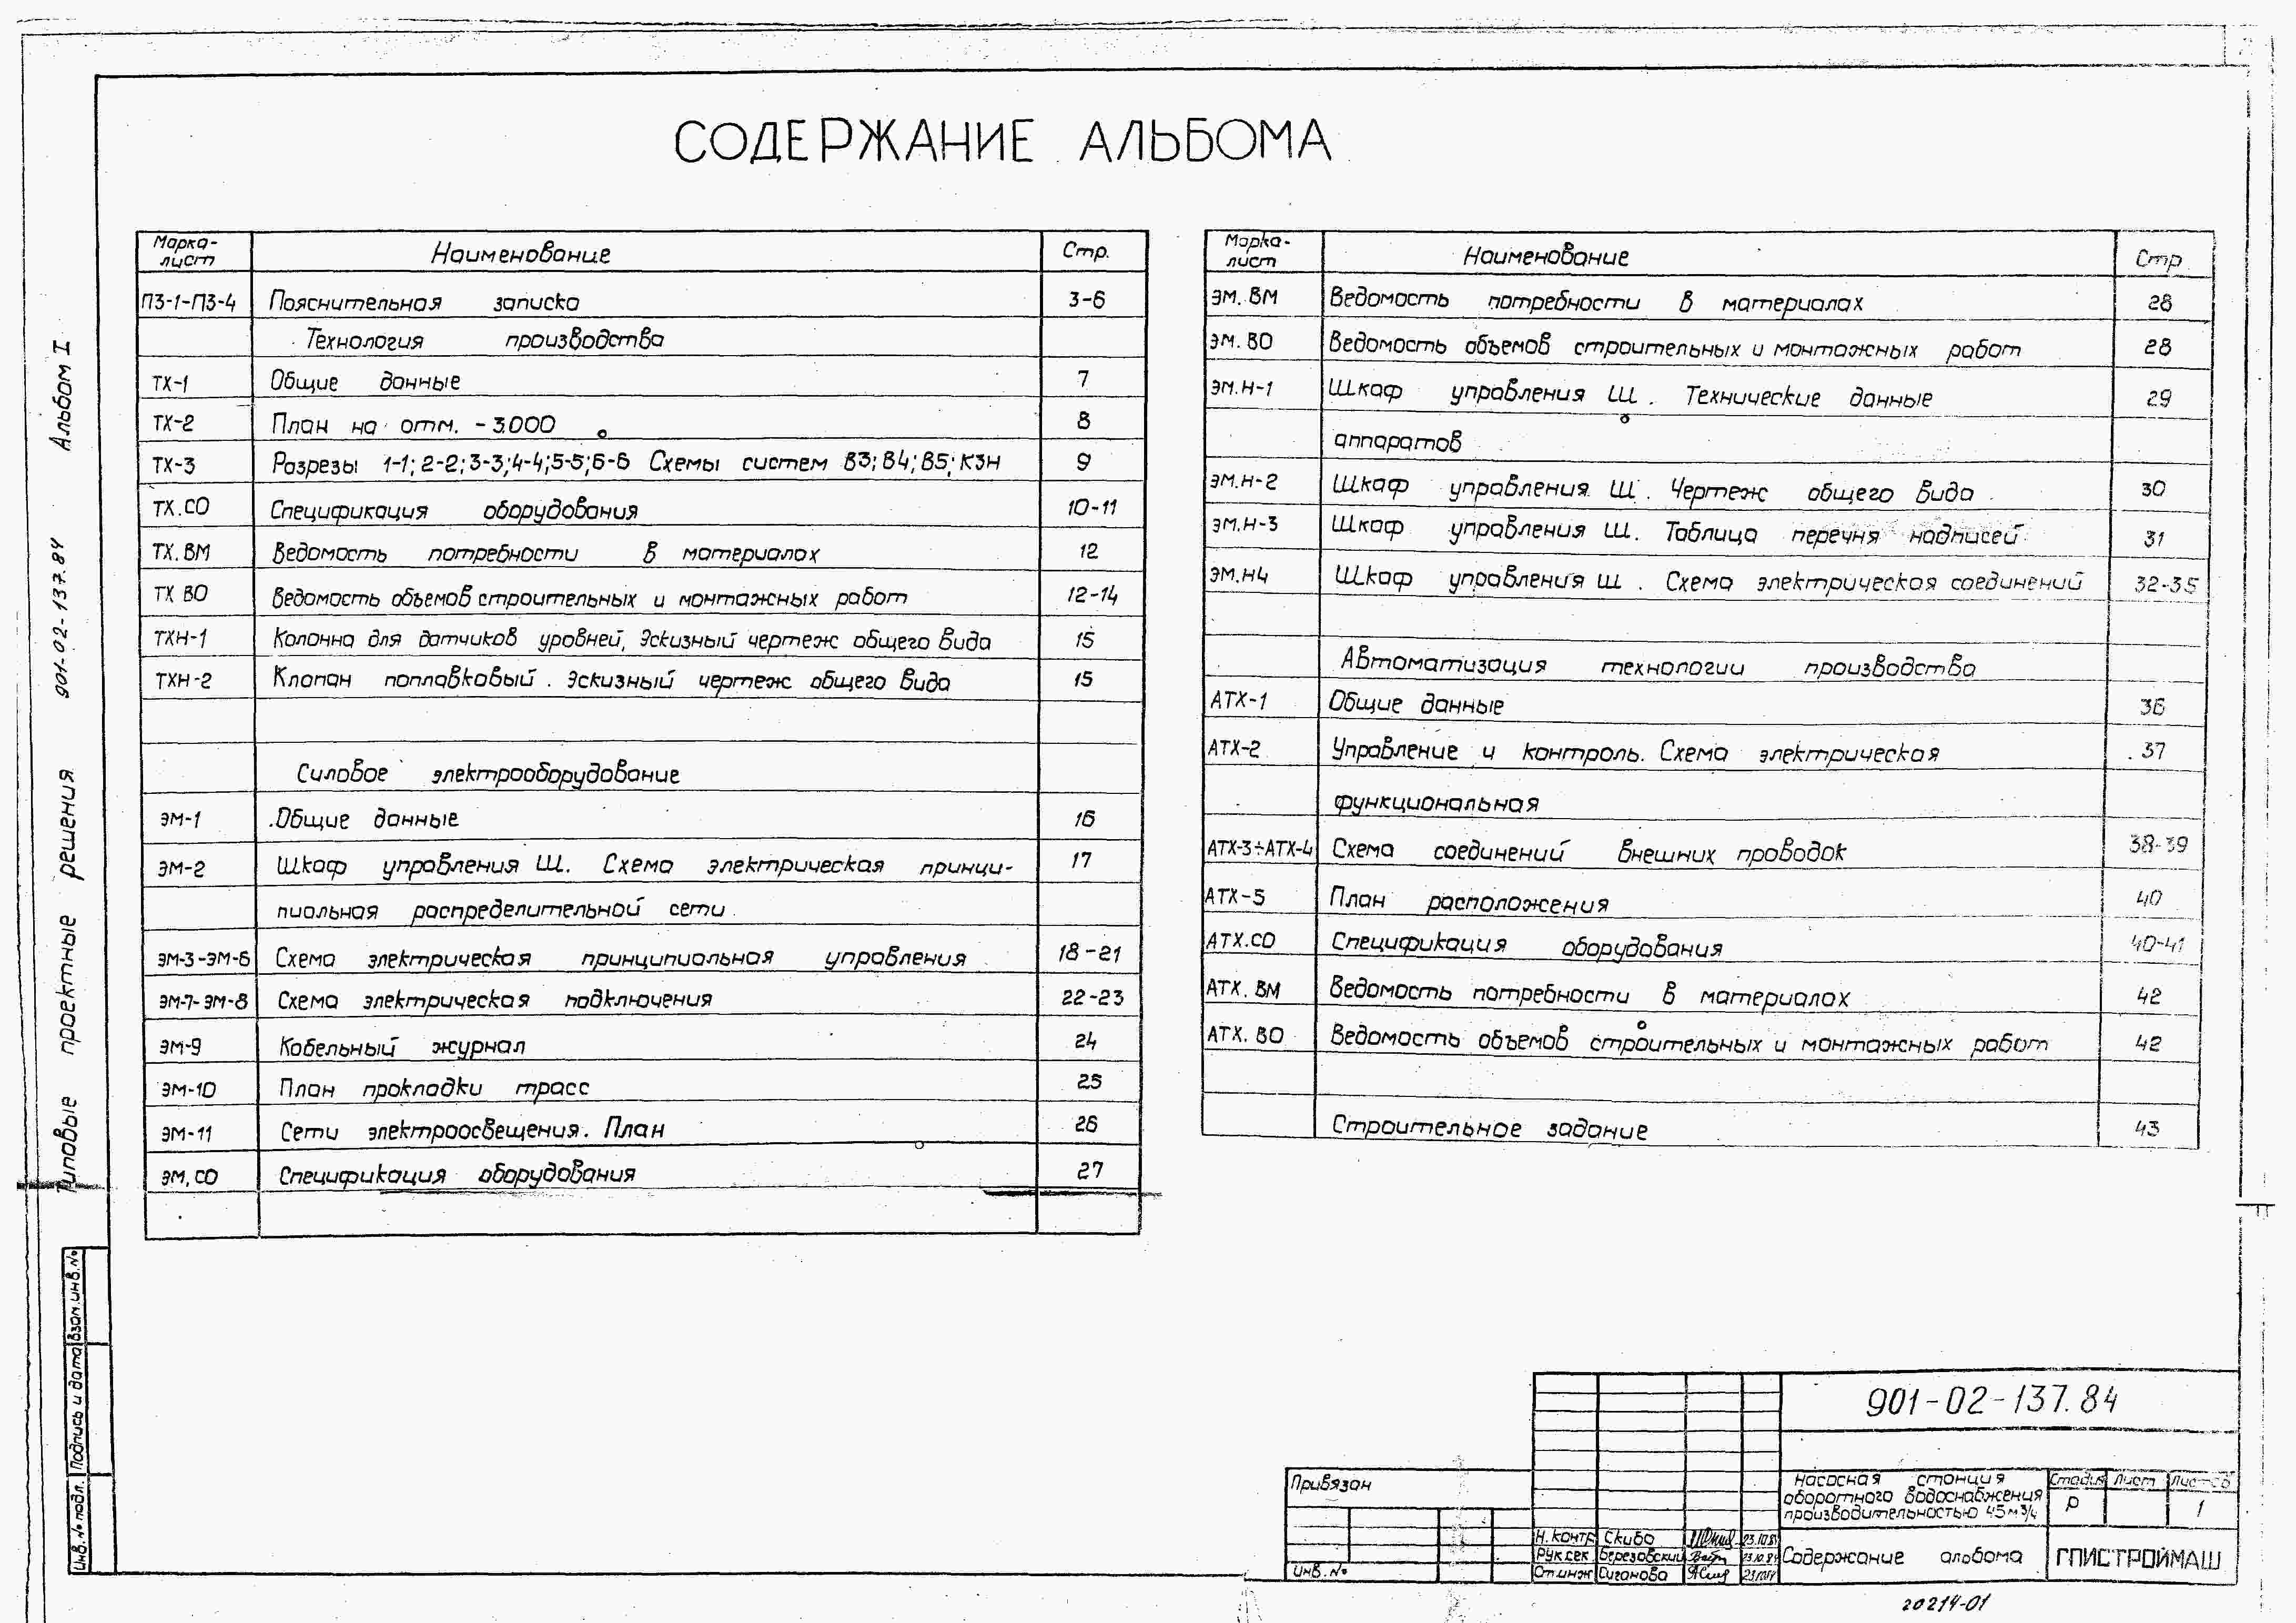 СОДЕРЖАНИЕ АЛЬБОМА
Марка-лист Наименование Стр.
ПЗ-1-ПЗ-4 Пояснительная записка 3-6
Технология производства
ТХ-1 Общие данные 7
ТХ-2 План на отм. -3.000 8
ТХ-3 Разрезы 1-1; 2-2; 3-3; 4-4; 5-5; 6-6 Схемы систем В3; В4; В5; К3Н 9
ТХ.СО Спецификация оборудования 10-11
ТХ.ВМ Ведомость потребности в материалах 12
ТХ ВО Ведомость объемов строительных и монтажных работ 12-14
ТХН-1 Колонна для датчиков уровней, Эскизный чертеж общего вида 15
ТХН-2 Клапан поплавковый. Эскизный чертеж общего вида 15
Силовое электрооборудование
ЭМ-1 Общие данные 16
ЭМ-2 Шкаф управления Ш. Схема электрическая принци- 17
пиальная распределительной сети
ЭМ-3-ЭМ-6 Схема электрическая принципиальная управления 18-21
ЭМ-7-ЭМ-8 Схема электрическая подключения 22-23
ЭМ-9 Кабельный журнал 24
ЭМ-10 План прокладки трасс 25
ЭМ-11 Сети электроосвещения. План 26
ЭМ.СО Спецификация оборудования 27
Марка-лист Наименование Стр
ЭМ.ВМ Ведомость потребности в материалах 28
ЭМ.ВО Ведомость объемов строительных и монтажных работ 28
ЭМ.Н-1 Шкаф управления Ш. Технические данные 29
аппаратов
ЭМ.Н-2 Шкаф управления Ш. Чертеж общего вида 30
ЭМ.Н-3 Шкаф управления Ш. Таблица перечня надписей 31
ЭМ.Н4 Шкаф управления Ш. Схема электрическая соединений 32-35
Автоматизация технологии производства
АТХ-1 Общие данные 36
АТХ-2 Управление и контроль. Схема электрическая 37
функциональная
АТХ-3÷АТХ-4 Схема соединений внешних проводок 38-39
АТХ-5 План расположения 40
АТХ.СО Спецификация оборудования 40-41
АТХ.ВМ Ведомость потребности в материалах 42
АТХ.ВО Ведомость объемов строительных и монтажных работ 42
Строительное задание 43
Типовые проектные решения 901-02-137.84 Альбом I
Инв.№ подл. Подпись и дата Взам.инв.№
Привязан
Инв.№
901-02-137.84
Насосная станция
оборотного водоснабжения
производительностью 45м3/ч
Стадия Лист Листов
Р 1
Н.контр Скибо 23.10.84
Рук.сек Березовский 23.10.84
Ст.инж Сиганова
Содержание альбома
ГПИСТРОЙМАШ
20214-01